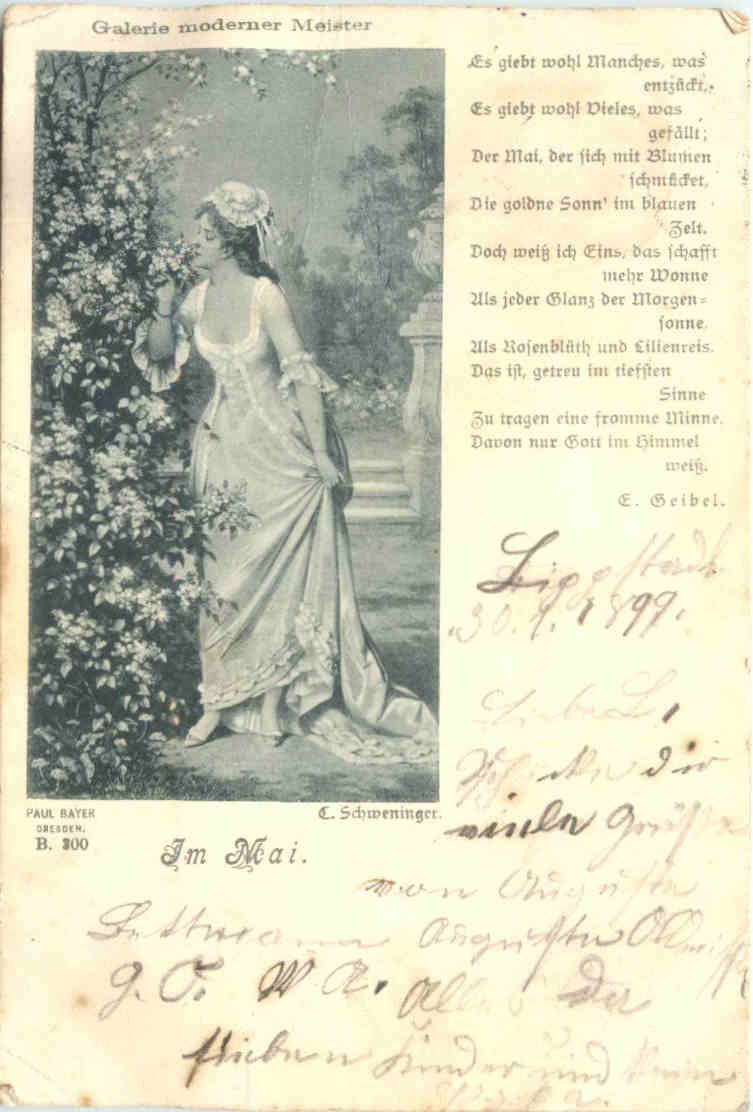 Galerie moderner Meister
Es giebt wohl Manches, was
entzückt,
Es giebt wohl Vieles, was
gefällt;
Der Mai, der sich mit Blumen
schmücket,
Die goldne Sonn' im blauen
Zelt.
Doch weiß ich Eins, das schafft
mehr Wonne
Als jeder Glanz der Morgen=
sonne.
Als Rosenblüth und Lilienreis.
Das ist, getreu im tiefsten
Sinne
Zu tragen eine fromme Minne.
Davon nur Gott im Himmel
weiß.
E. Geibel.
Lippstadt
30. 1899.
PAUL BAYER
DRESDEN.
B. 300
C. Schweninger.
Im Mai.
dir
viele Grüße
von Auguste
Auguste
g. T. W. A. Alle der
lieben Kinder und